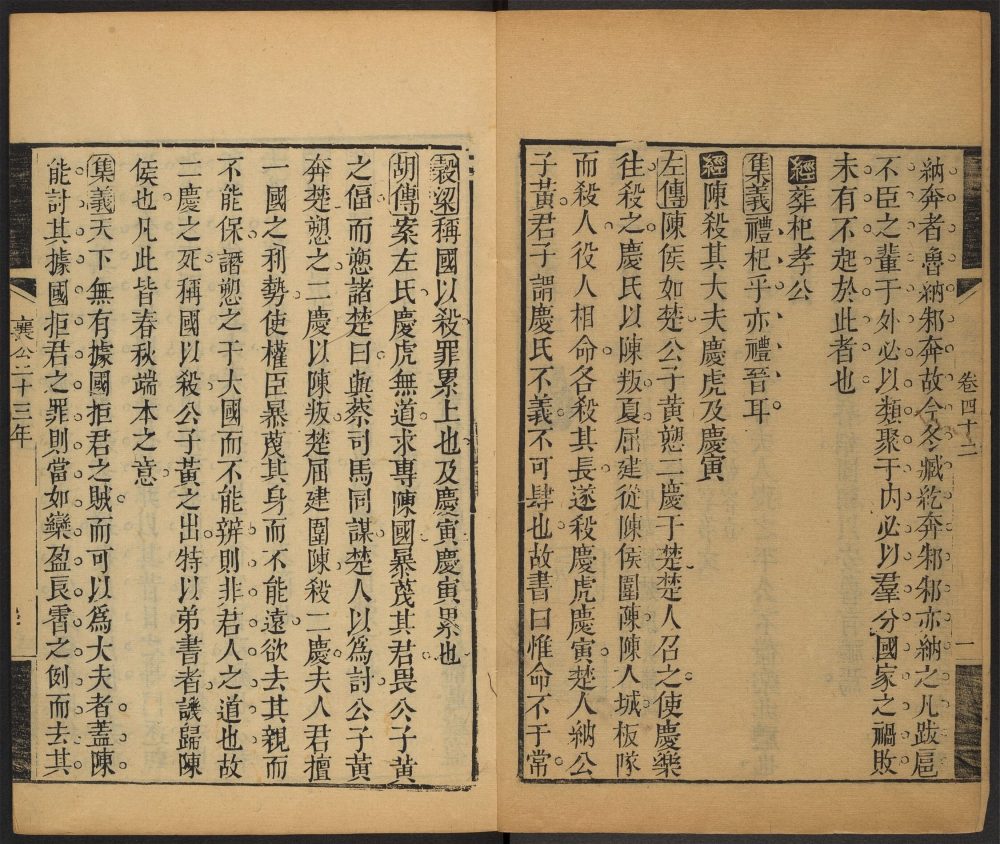 卷四十二
一
納奔者魯納邾奔故今冬臧紇奔邾邾亦納之凡跋扈
不臣之輩于外必以類聚于内必以羣分國家之禍敗
未有不起於此者也
經葬杞孝公
集義禮杞乎亦禮晉耳
經陳殺其大夫慶虎及慶寅
左傳陳侯如楚公子黃愬二慶于楚楚人召之使慶樂
往殺之慶氏以陳叛夏屈建從陳侯圍陳陳人城板隊
而殺人役人相命各殺其長遂殺慶虎慶寅楚人納公
子黃君子謂慶氏不義不可肆也故書曰惟命不于常
穀梁稱國以殺罪累上也及慶寅慶寅累也
胡傳案左氏慶虎無道求專陳國暴蔑其君畏公子黃
之偪而愬諸楚曰與蔡司馬同謀楚人以為討公子黃
奔楚愬之二慶以陳叛楚屈建圍陳殺二慶夫人君擅
一國之利勢使權臣暴蔑其身而不能遠欲去其親而
不能保譖愬之于大國而不能辨則非君人之道也故
二慶之死稱國以殺公子黃之出特以弟書者譏歸陳
侯也凡此皆春秋端本之意
集義天下無有據國拒君之賊而可以爲大夫者蓋陳
能討其據國拒君之罪則當如欒盈良霄之例而去其
襄公二十三年